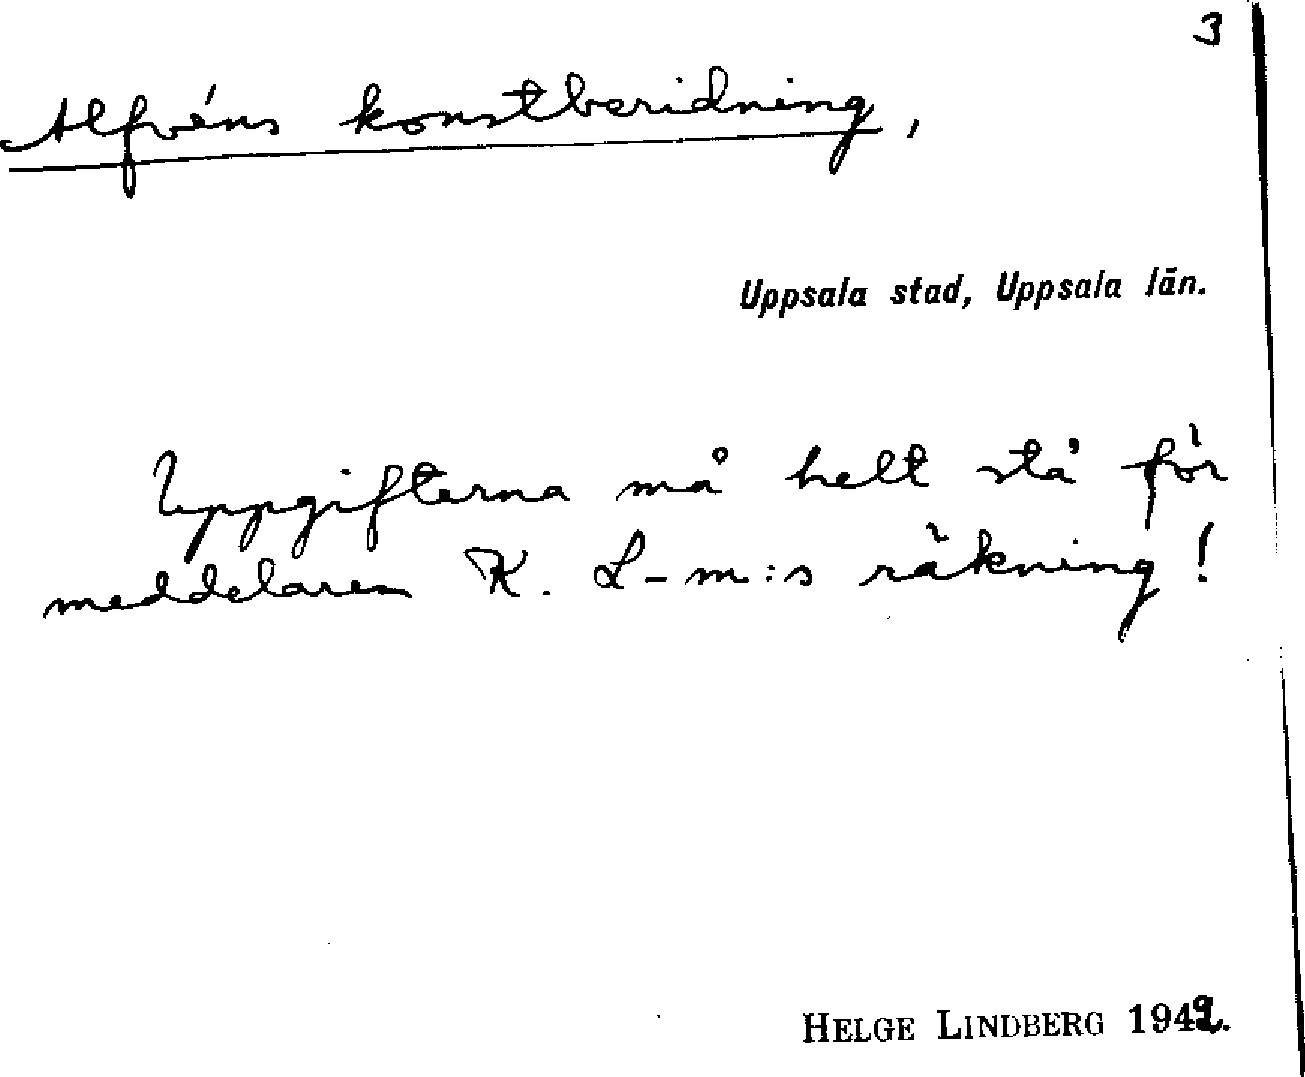 3
Alfvéns konstberidning,
Uppsala stad, Uppsala län.
Uppgifterna må helt stå för
meddelaren K. L-m:s räkning!
HELGE LINDBERG 1942.